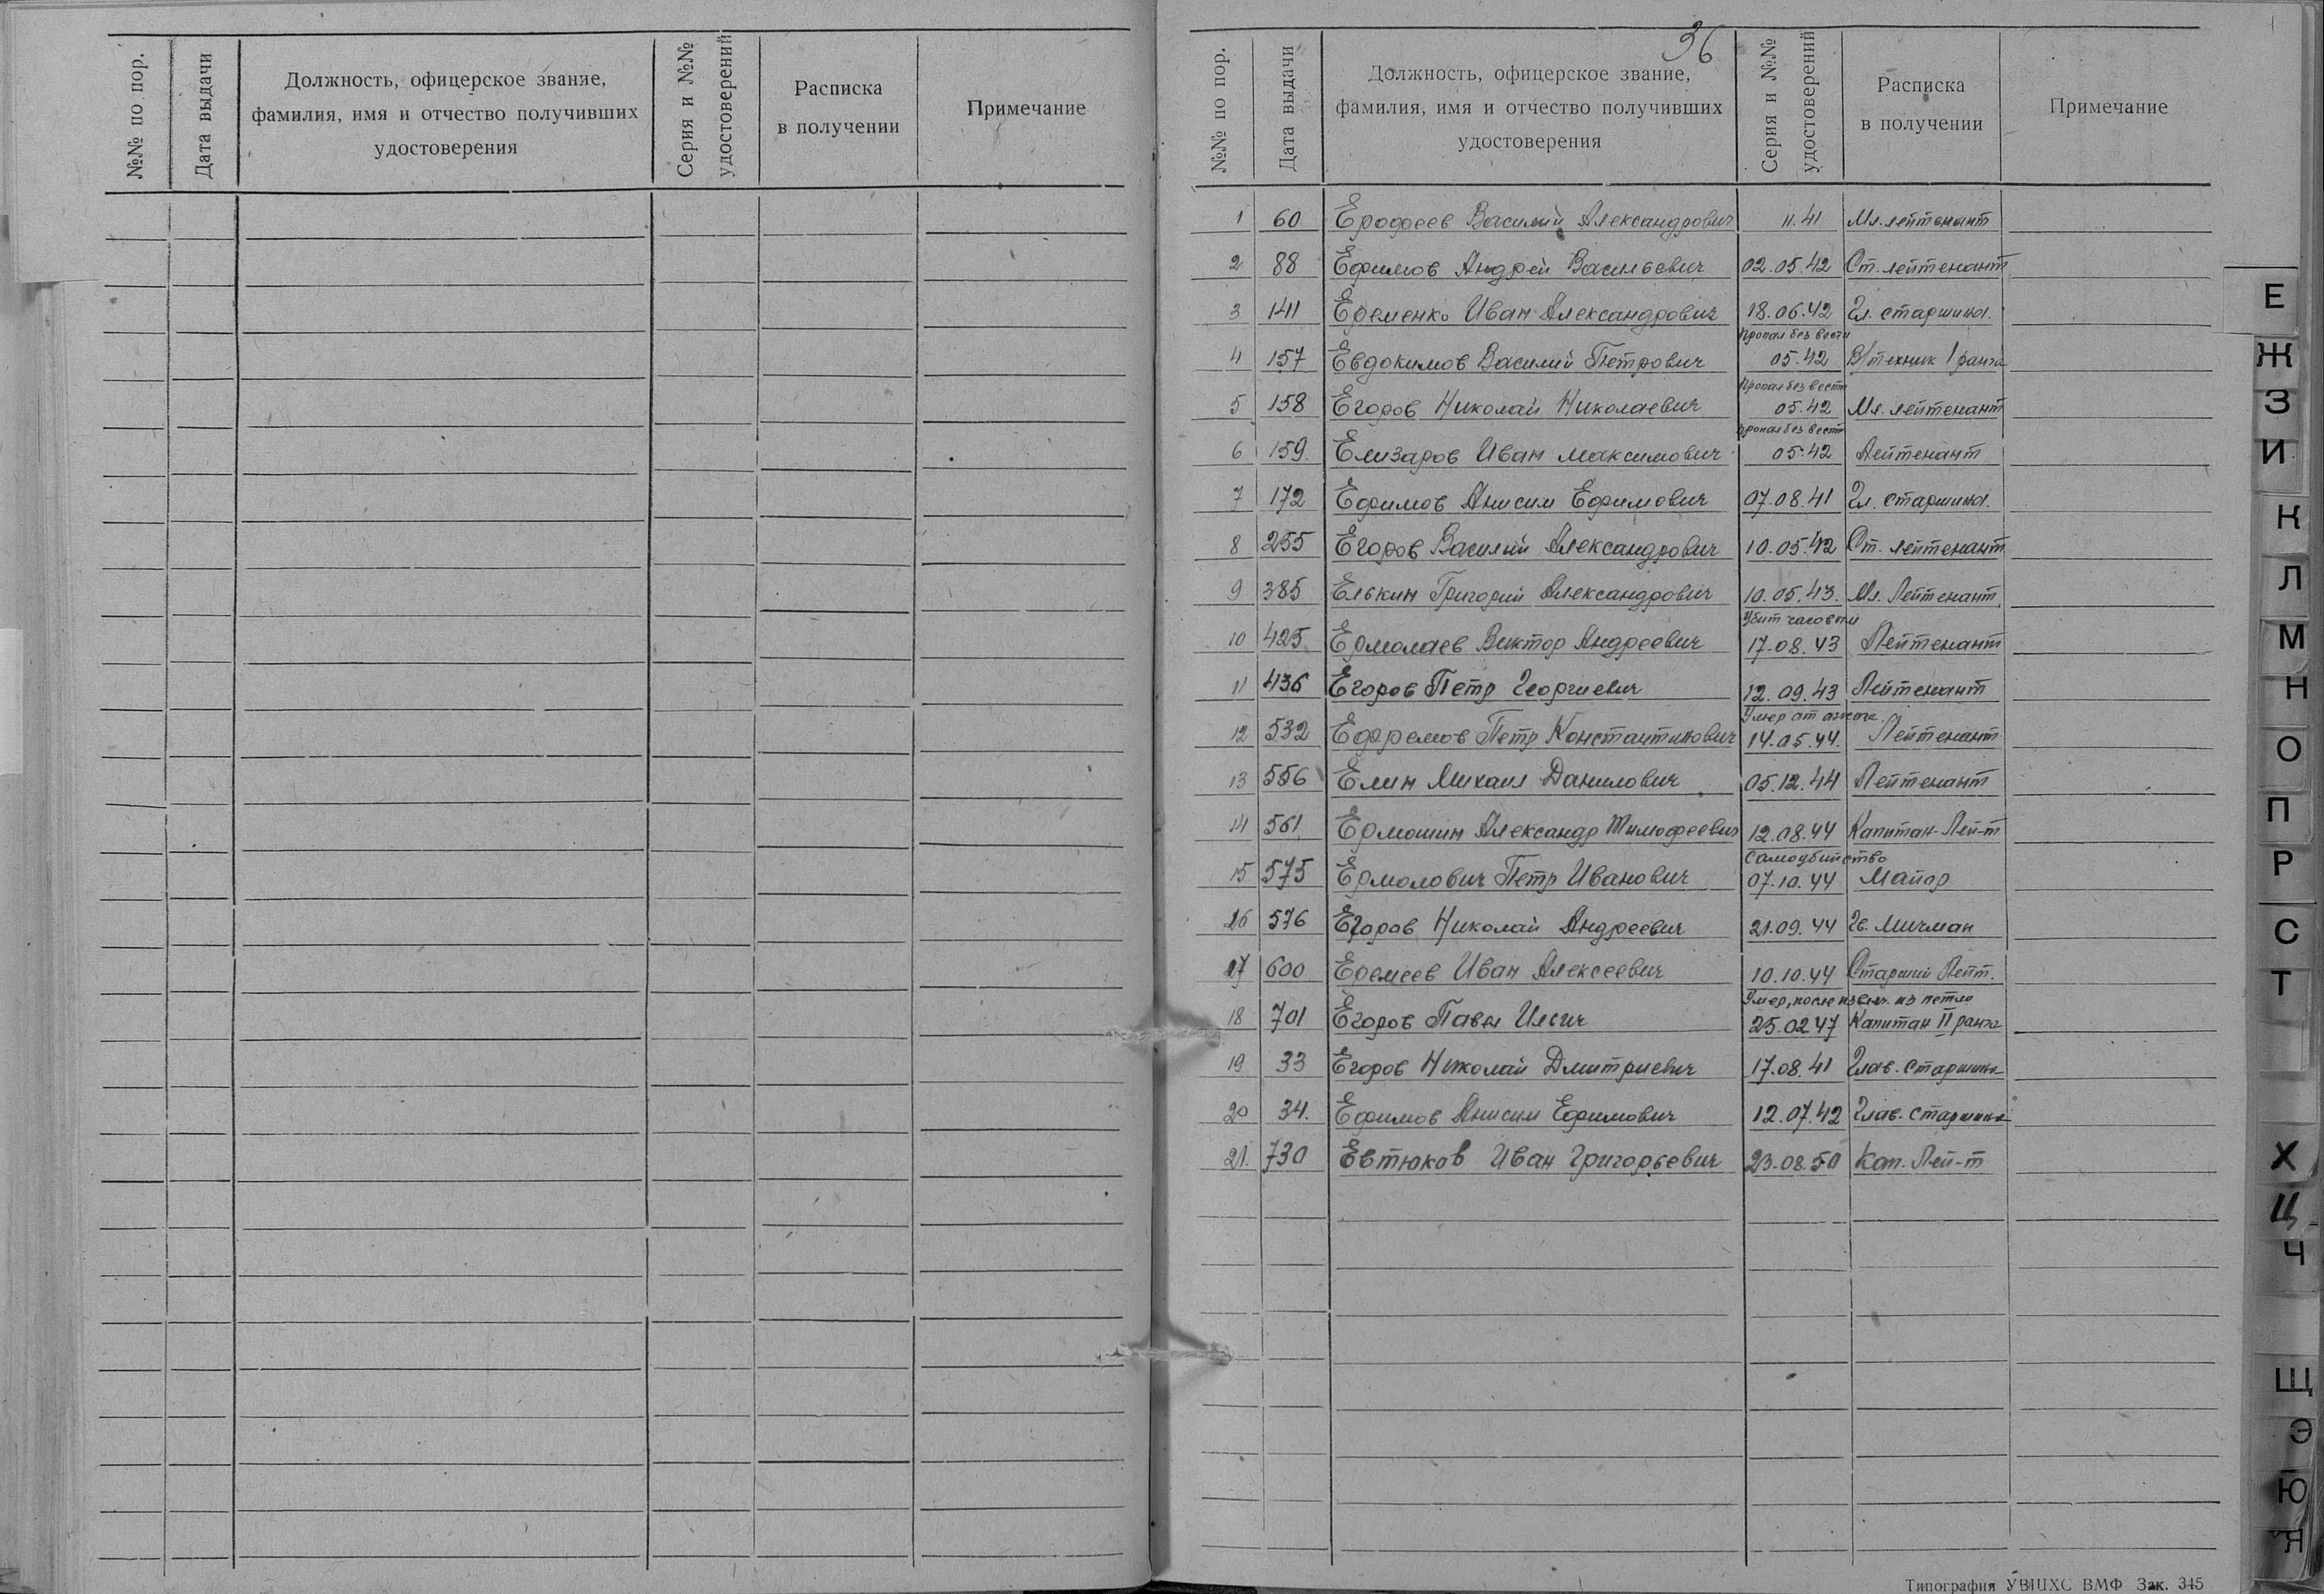 №№ по пор.
Дата выдачи
Должность, офицерское звание,
фамилия, имя и отчество получивших
удостоверения
Серия и №№
удостоверений
Расписка
в получении
Примечание
36
№№ по пор.
Дата выдачи
Должность, офицерское звание,
фамилия, имя и отчество получивших
удостоверения
Серия и №№
удостоверений
Расписка
в получении
Примечание
1 60 Ерофеев Василий Александрович 11.41 Мл. лейтенант
2 88 Ефимов Андрей Васильевич 02.05.42 Ст. лейтенант
3 141 Еременко Иван Александрович 18.06.42 Гл. старшина.
Пропал без вести
4 157 Евдокимов Василий Петрович 05.42 В/техник 1 ранга
Пропал без вести
5 158 Егоров Николай Николаевич 05.42 Мл. лейтенант
Пропал без вести
6 159 Елизаров Иван Максимович 05.42 Лейтенант
7 172 Ефимов Анисим Ефимович 07.08.41 Гл. старшина.
8 255 Егоров Василий Александрович 10.05.42 Ст. лейтенант
9 385 Елькин Григорий Александрович 10.05.43. Мл. Лейтенант
Убит часовым
10 425 Ермолаев Виктор Андреевич 17.08.43 Лейтенант
11 436 Егоров Петр Георгиевич 12.09.43 Лейтенант
Умер от ожога.
12 532 Ефремов Петр Константинович 14.05.44. Лейтенант
13 556 Елин Михаил Данилович 05.12.44 Лейтенант
14 561 Ермошин Александр Тимофеевич 12.08.44 Капитан-Лей-т
Самоубийство
15 575 Ермолович Петр Иванович 07.10.44 Майор
16 576 Егоров Николай Андреевич 21.09.44 Гв. Мичман
17 600 Еремеев Иван Алексеевич 10.10.44 Старший Лейт.
Умер, после извлеч. из петли
18 701 Егоров Павел Ильич 25.02.47 Капитан II ранга
19 33 Егоров Николай Дмитриевич 17.08.41 Глав. Старшина
20 34. Ефимов Анисим Ефимович 12.07.42 Глав. старшина
21. 730 Евтюков Иван Григорьевич 23.08.50 Кап. Лей-т
Е
Ж
З
И
К
Л
М
Н
О
П
Р
С
Т
Х
Ц
Ч
Щ
Э
Ю
Я
Типография УВШХС ВМФ Зак. 345